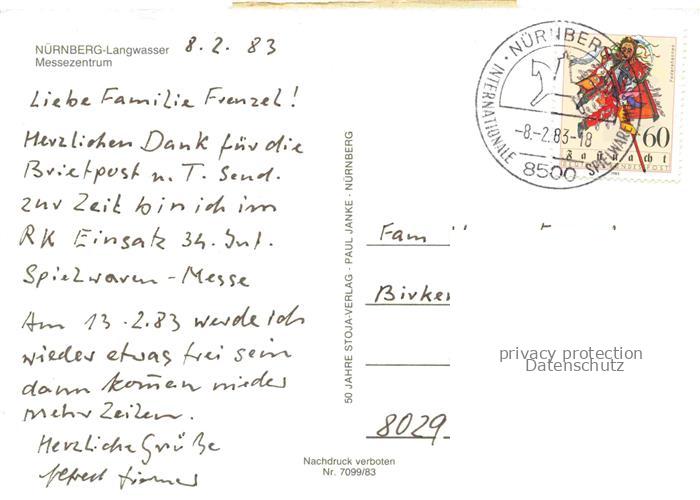 NÜRNBERG-Langwasser
Messezentrum
8.2.83
Liebe Familie Frenzel!
Herzlichen Dank für die
Briefpost u. T. Send.
zur Zeit bin ich im
RK Einsatz 34. Int.
Spielwaren-Messe
Am 13.2.83 werde ich
wieder etwas frei sein
dann kommen wieder
mehr Zeilen.
Herzliche Grüße
Alfred
50 JAHRE STOJA-VERLAG - PAUL JANKE - NÜRNBERG
Nachdruck verboten
Nr. 7099/83
NÜRNBERG
INTERNATIONALE SPIELWAREN
-8.-2.83-18
8500
60
Fam
Birke
privacy protection
Datenschutz
8029